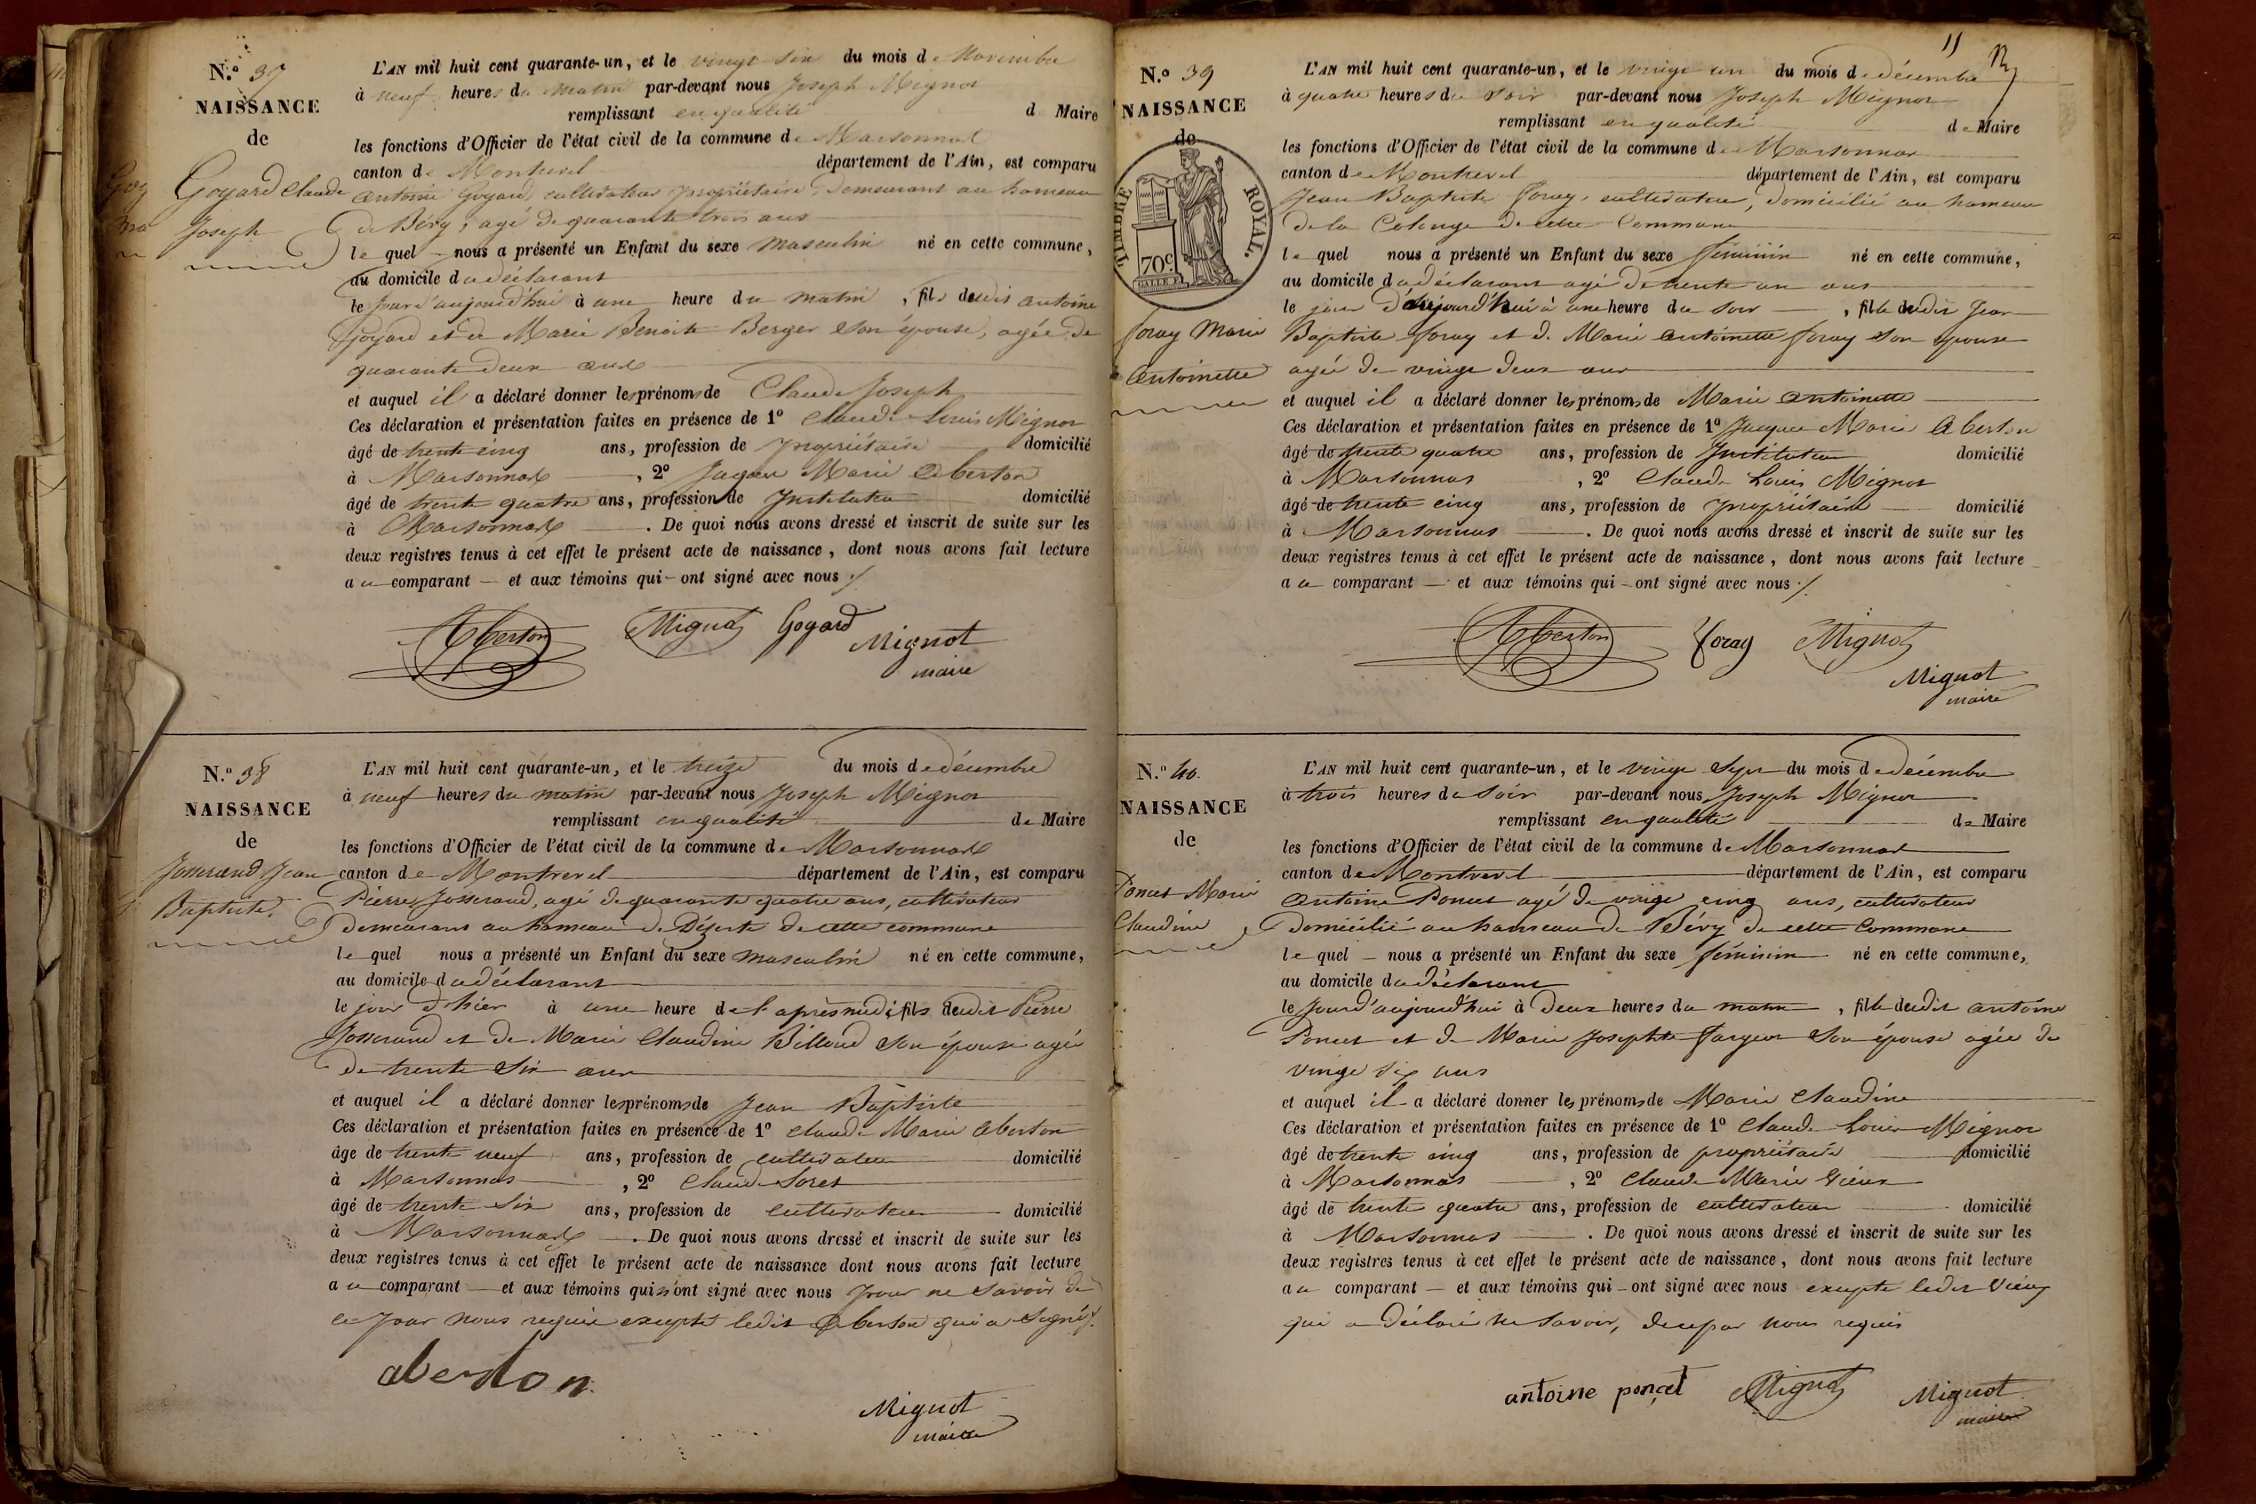 N.º 37
NAISSANCE
de
Goyard Claude
Joseph
L'AN mil huit cent quarante-un, et le vingt six du mois de Novembre
à neuf heures du matin par-devant nous Joseph Mignot
remplissant en qualité d Maire
les fonctions d'Officier de l'état civil de la commune de Marsonnas
canton de Montrevel département de l'Ain, est comparu
antoine Goyard, cultivateur propriétaire demeurant au hameau
de Bévy, agé de quarante trois ans
le quel nous a présenté un Enfant du sexe masculin né en cette commune,
au domicile du déclarant
le jour d'aujourd'hui à une heure du matin, fils dudit antoine
Goyard et de Marie Benoite Berger son épouse, agée de
quarante deux ans
et auquel il a déclaré donner les prénoms de Claude Joseph
Ces déclaration et présentation faites en présence de 1º Claude Louis Mignot
âgé de trente cinq ans, profession de propriétaire domicilié
à Marsonnas, 2º Jaque Marie Aberton
âgé de trente quatre ans, profession de Instituteur domicilié
à Marsonnas. De quoi nous avons dressé et inscrit de suite sur les
deux registres tenus à cet effet le présent acte de naissance, dont nous avons fait lecture
au comparant et aux témoins qui ont signé avec nous ./.
Aberton Mignot Goyard
Mignot
maire
N.º 38
NAISSANCE
de
Josserand Jean
Baptiste
L'AN mil huit cent quarante-un, et le treize du mois de décembre
à neuf heures du matin par-devant nous Joseph Mignot
remplissant en qualité de Maire
les fonctions d'Officier de l'état civil de la commune de Marsonnas
canton de Montrevel département de l'Ain, est comparu
Pierre Josserand, agé de quarante quatre ans, cultivateur
demeurant au hameau de Déserte de cette commune
le quel nous a présenté un Enfant du sexe masculin né en cette commune,
au domicile du déclarant
le jour d'hier à une heure de l'après midi, fils dudit Pierre
Josserand et de Marie Claudine Billoud son épouse agée
de trente six ans
et auquel il a déclaré donner les prénoms de Jean Baptiste
Ces déclaration et présentation faites en présence de 1º Claude Marie Aberton
âge de trente neuf ans, profession de cultivateur domicilié
à Marsonnas, 2º Claude Soret
âgé de trente six ans, profession de cultivateur domicilié
à Marsonnas. De quoi nous avons dressé et inscrit de suite sur les
deux registres tenus à cet effet le présent acte de naissance dont nous avons fait lecture
au comparant et aux témoins qui n'ont signé avec nous pour ne savoir de
ce par nous requis excepté ledit Aberton qui a signé ./.
aberton
Mignot
maire
11
N.º 39
NAISSANCE
de
TIMBRE ROYAL.
70c
foray Marie
Antoinette
L'AN mil huit cent quarante-un, et le vingt un du mois de décembre
à quatre heures du soir par-devant nous Joseph Mignot
remplissant en qualité de Maire
les fonctions d'Officier de l'état civil de la commune de Marsonnas
canton de Montrevel département de l'Ain, est comparu
Jean Baptiste foray, cultivateur, domicilié au hameau
de la Colonge de cette Commune
le quel nous a présenté un Enfant du sexe féminin né en cette commune,
au domicile du déclarant agé de trente un ans
le jour d'aujourd'hui à une heure du soir, fille dudit Jean
Baptiste foray et de Marie antoinette foray son épouse
agée de vingt deux ans
et auquel il a déclaré donner les prénoms de Marie Antoinette
Ces déclaration et présentation faites en présence de 1º Jacque Marie Aberton
âgé de trente quatre ans, profession de Instituteur domicilié
à Marsonnas, 2º Claude Louis Mignot
âgé de trente cinq ans, profession de propriétaire domicilié
à Marsonnas. De quoi nous avons dressé et inscrit de suite sur les
deux registres tenus à cet effet le présent acte de naissance, dont nous avons fait lecture
au comparant et aux témoins qui ont signé avec nous ./.
Aberton foray Mignot
Mignot
maire
N.º 40.
NAISSANCE
de
Poncet Marie
Claudine
L'AN mil huit cent quarante-un, et le vingt sept du mois de décembre
à trois heures du soir par-devant nous Joseph Mignot
remplissant en qualité de Maire
les fonctions d'Officier de l'état civil de la commune de Marsonnas
canton de Montrevel département de l'Ain, est comparu
antoine Poncet agé de vingt cinq ans, cultivateur
domicilié au hameau de Bévy de cette Commune
le quel nous a présenté un Enfant du sexe féminin né en cette commune,
au domicile du déclarant
le jour d'aujourd'hui à deux heures du matin, fille dudit antoine
Poncet et de Marie Josephte fargeot son épouse agée de
vingt six ans
et auquel il a déclaré donner les prénoms de Marie Claudine
Ces déclaration et présentation faites en présence de 1º Claude Louis Mignot
âgé de trente cinq ans, profession de propriétaire domicilié
à Marsonnas, 2º Claude Marie Vieux
âgé de trente quatre ans, profession de cultivateur domicilié
à Marsonnas. De quoi nous avons dressé et inscrit de suite sur les
deux registres tenus à cet effet le présent acte de naissance, dont nous avons fait lecture
au comparant et aux témoins qui ont signé avec nous excepté ledit Vieux
qui a déclaré ne savoir, de ce par nous requis
antoine poncet Mignot Mignot
maire